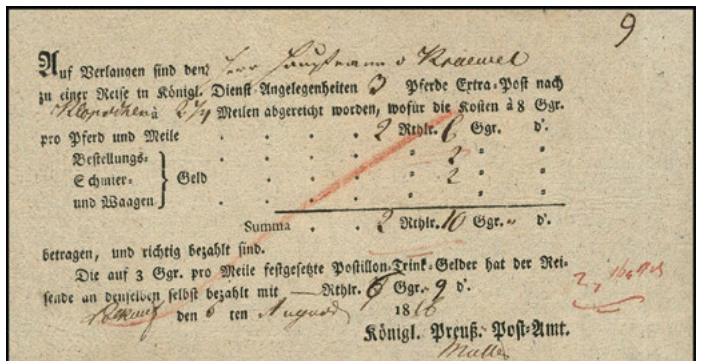 9
Auf Verlangen sind dem Herr Hauptmann v
zu einer Reise in Königl. Dienst-Angelegenheiten 3 Pferde Extra-Post nach
à 2 1/4 Meilen abgereicht worden, wofür die Kosten à 8 Ggr.
pro Pferd und Meile . . . . 2 Rthlr. 6 Ggr. „ d'.
Bestellungs- . . . . . „ 2 „ „
Schmier- } Geld . . . . . „ 2 „ „
und Waagen . . . . . „ „ „
Summa . . 2 Rthlr. 10 Ggr. „ d'.
betragen, und richtig bezahlt sind.
Die auf 3 Ggr. pro Meile festgesetzte Postillon-Trink-Gelder hat der Rei-
sende an denselben selbst bezahlt mit — Rthlr. 6 Ggr. 9 d'.
den 6 ten August 1816
Königl. Preuß. Post-Amt.